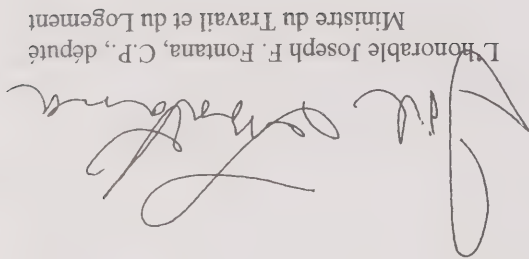 L'honorable Joseph F. Fontana, C.P., député
Ministre du Travail et du Logement